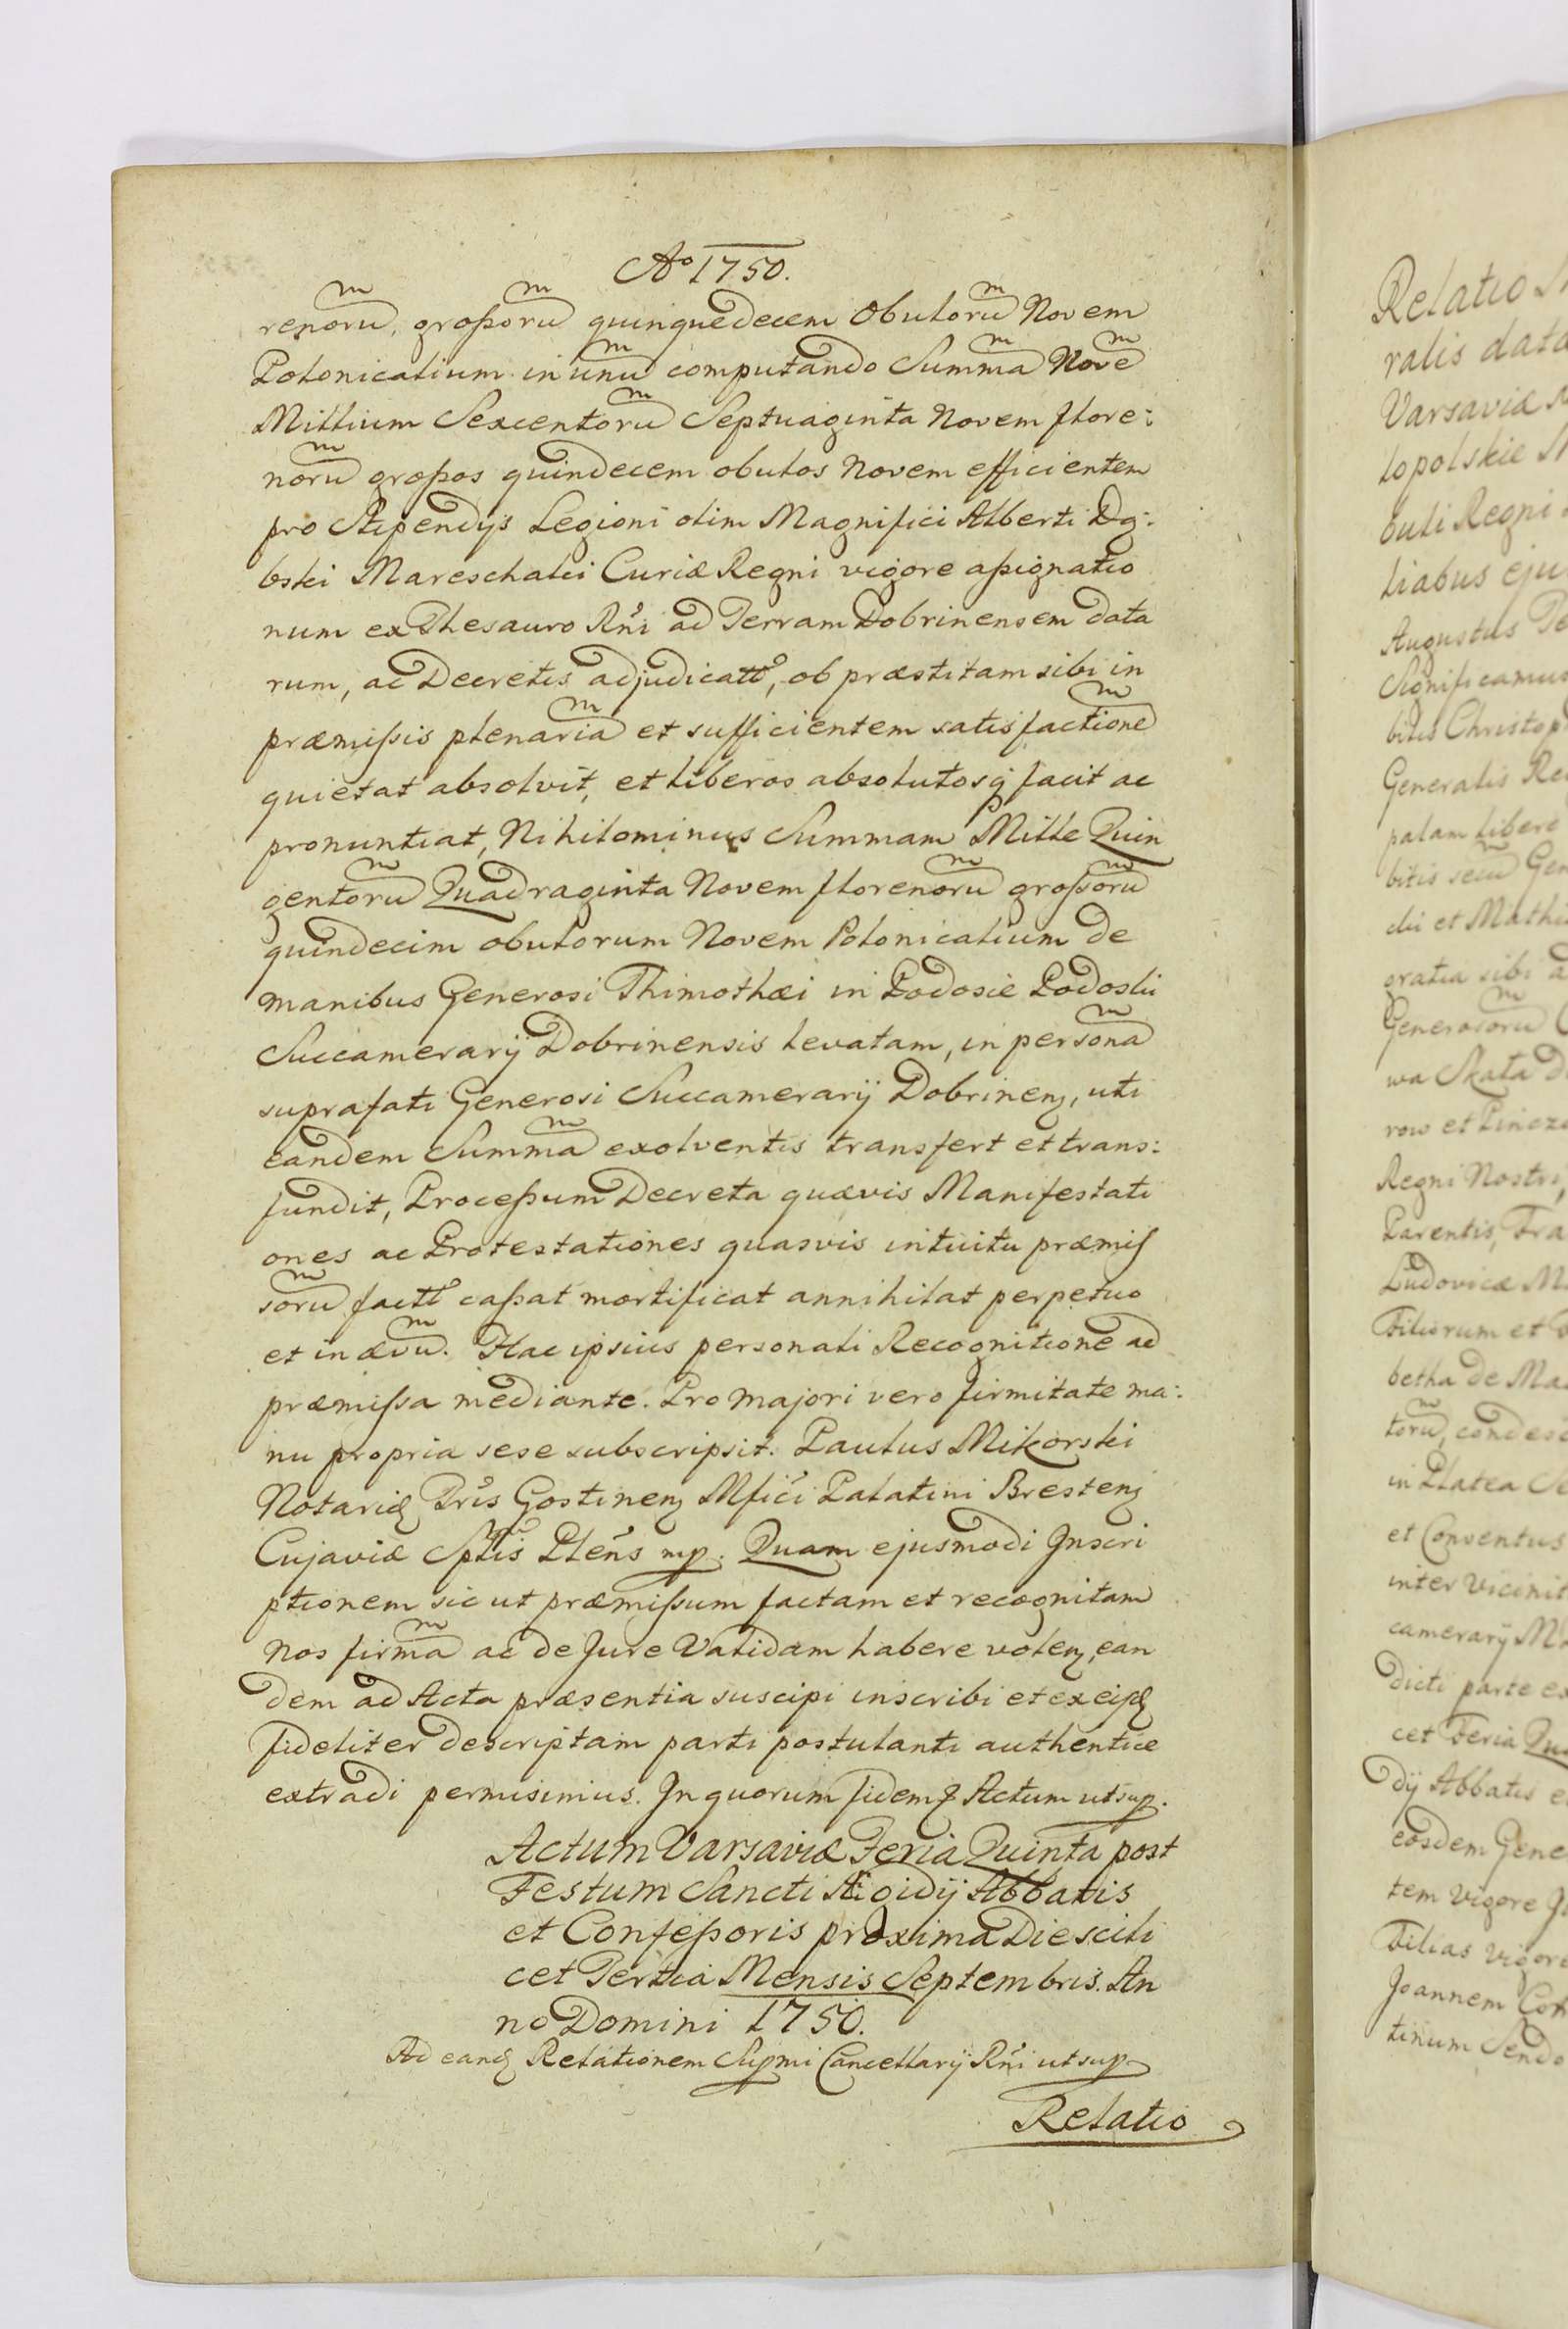 Ao 1750.
renorum, großorum quinquedecem Obulorum Novem
Polonicalium in unum computando Summam Novem
Millium Sexcentorum Septuaginta Novem flore:
norum großos quindecem obulos Novem efficientem
pro Stipendijs Legioni olim Magnifici Alberti Dą:
bski Mareschalci Curiæ Regni vigore aßignatio
num ex Thesauro Rñi ad Terram Dobrinensem data
rum, ac Decretis adjudicatt°, ob præstitam sibi in
præmißis plenariam et sufficientem satisfactionem
quietat absolvit, et liberos absolutosq facit ac
pronuntiat, Nihilominus Summam Mille Quin
gentorum Quadraginta Novem florenorum großorum
quindecim obulorum Novem Polonicalium de
manibus Generosi Thimothæi in Podosie Podoski
Succamerarij Dobrinensis levatam, in personam
suprafati Generosi Succamerarij Dobrinen, uti
eandem Summam exolventis transfert et trans:
fundit, Proceßum Decreta quævis Manifestati
ones ac Protestationes quasvis intuitu præmis
sorum factt° caßat mortificat annihilat perpetuo
et in ævum. Hac ipsius personali Recognitione ad
præmißa mediante. Pro majori vero firmitate ma:
nu propria sese subscripsit. Paulus Mikorski
Notariq Trŕis Gostinen Mfici Palatini Bresten
Cujaviæ Sptlis Pleñs mp. Quam ejusmodi Inscri
ptionem sic ut præmißum factam et recognitam
Nos firmam ac de Jure Validam habere volen, ean
dem ad Acta præsentia suscipi inscribi et ex eisd
fideliter descriptam parti postulanti authentice
extradi permisimus. In quorum fidem Actum ut sup.
Actum Varsaviæ Feria Quinta post
Festum Sancti Ægidij Abbatis
et Confeßoris proxima Die scili
cet Tertia Mensis Septembris. An
no Domini 1750.
Ad eand Relationem Supmi Cancellarij Rñi ut sup
Relatio
Relatio
ralis data
Varsaviæ
lopolskie
buli Regni
liabus eju
Augustus
Significamus
bitis Christop
Generalis
palam libere
bitis secum Gen
chi et Mathi
gratia sibi a
Generosorum
wa Skala
row et Pincz
Regni Nostri,
Parentis, Fra
Ludovicæ
Filiorum et
betha de Ma
torum, condesc
in Platea
et Conventus
inter vicinit
camerarij
dicti parte ex
cet Feria Qu
dij Abbatis e
eosdem Gene
tem vigore
Filias vigore
Joannem
tinum Sendo